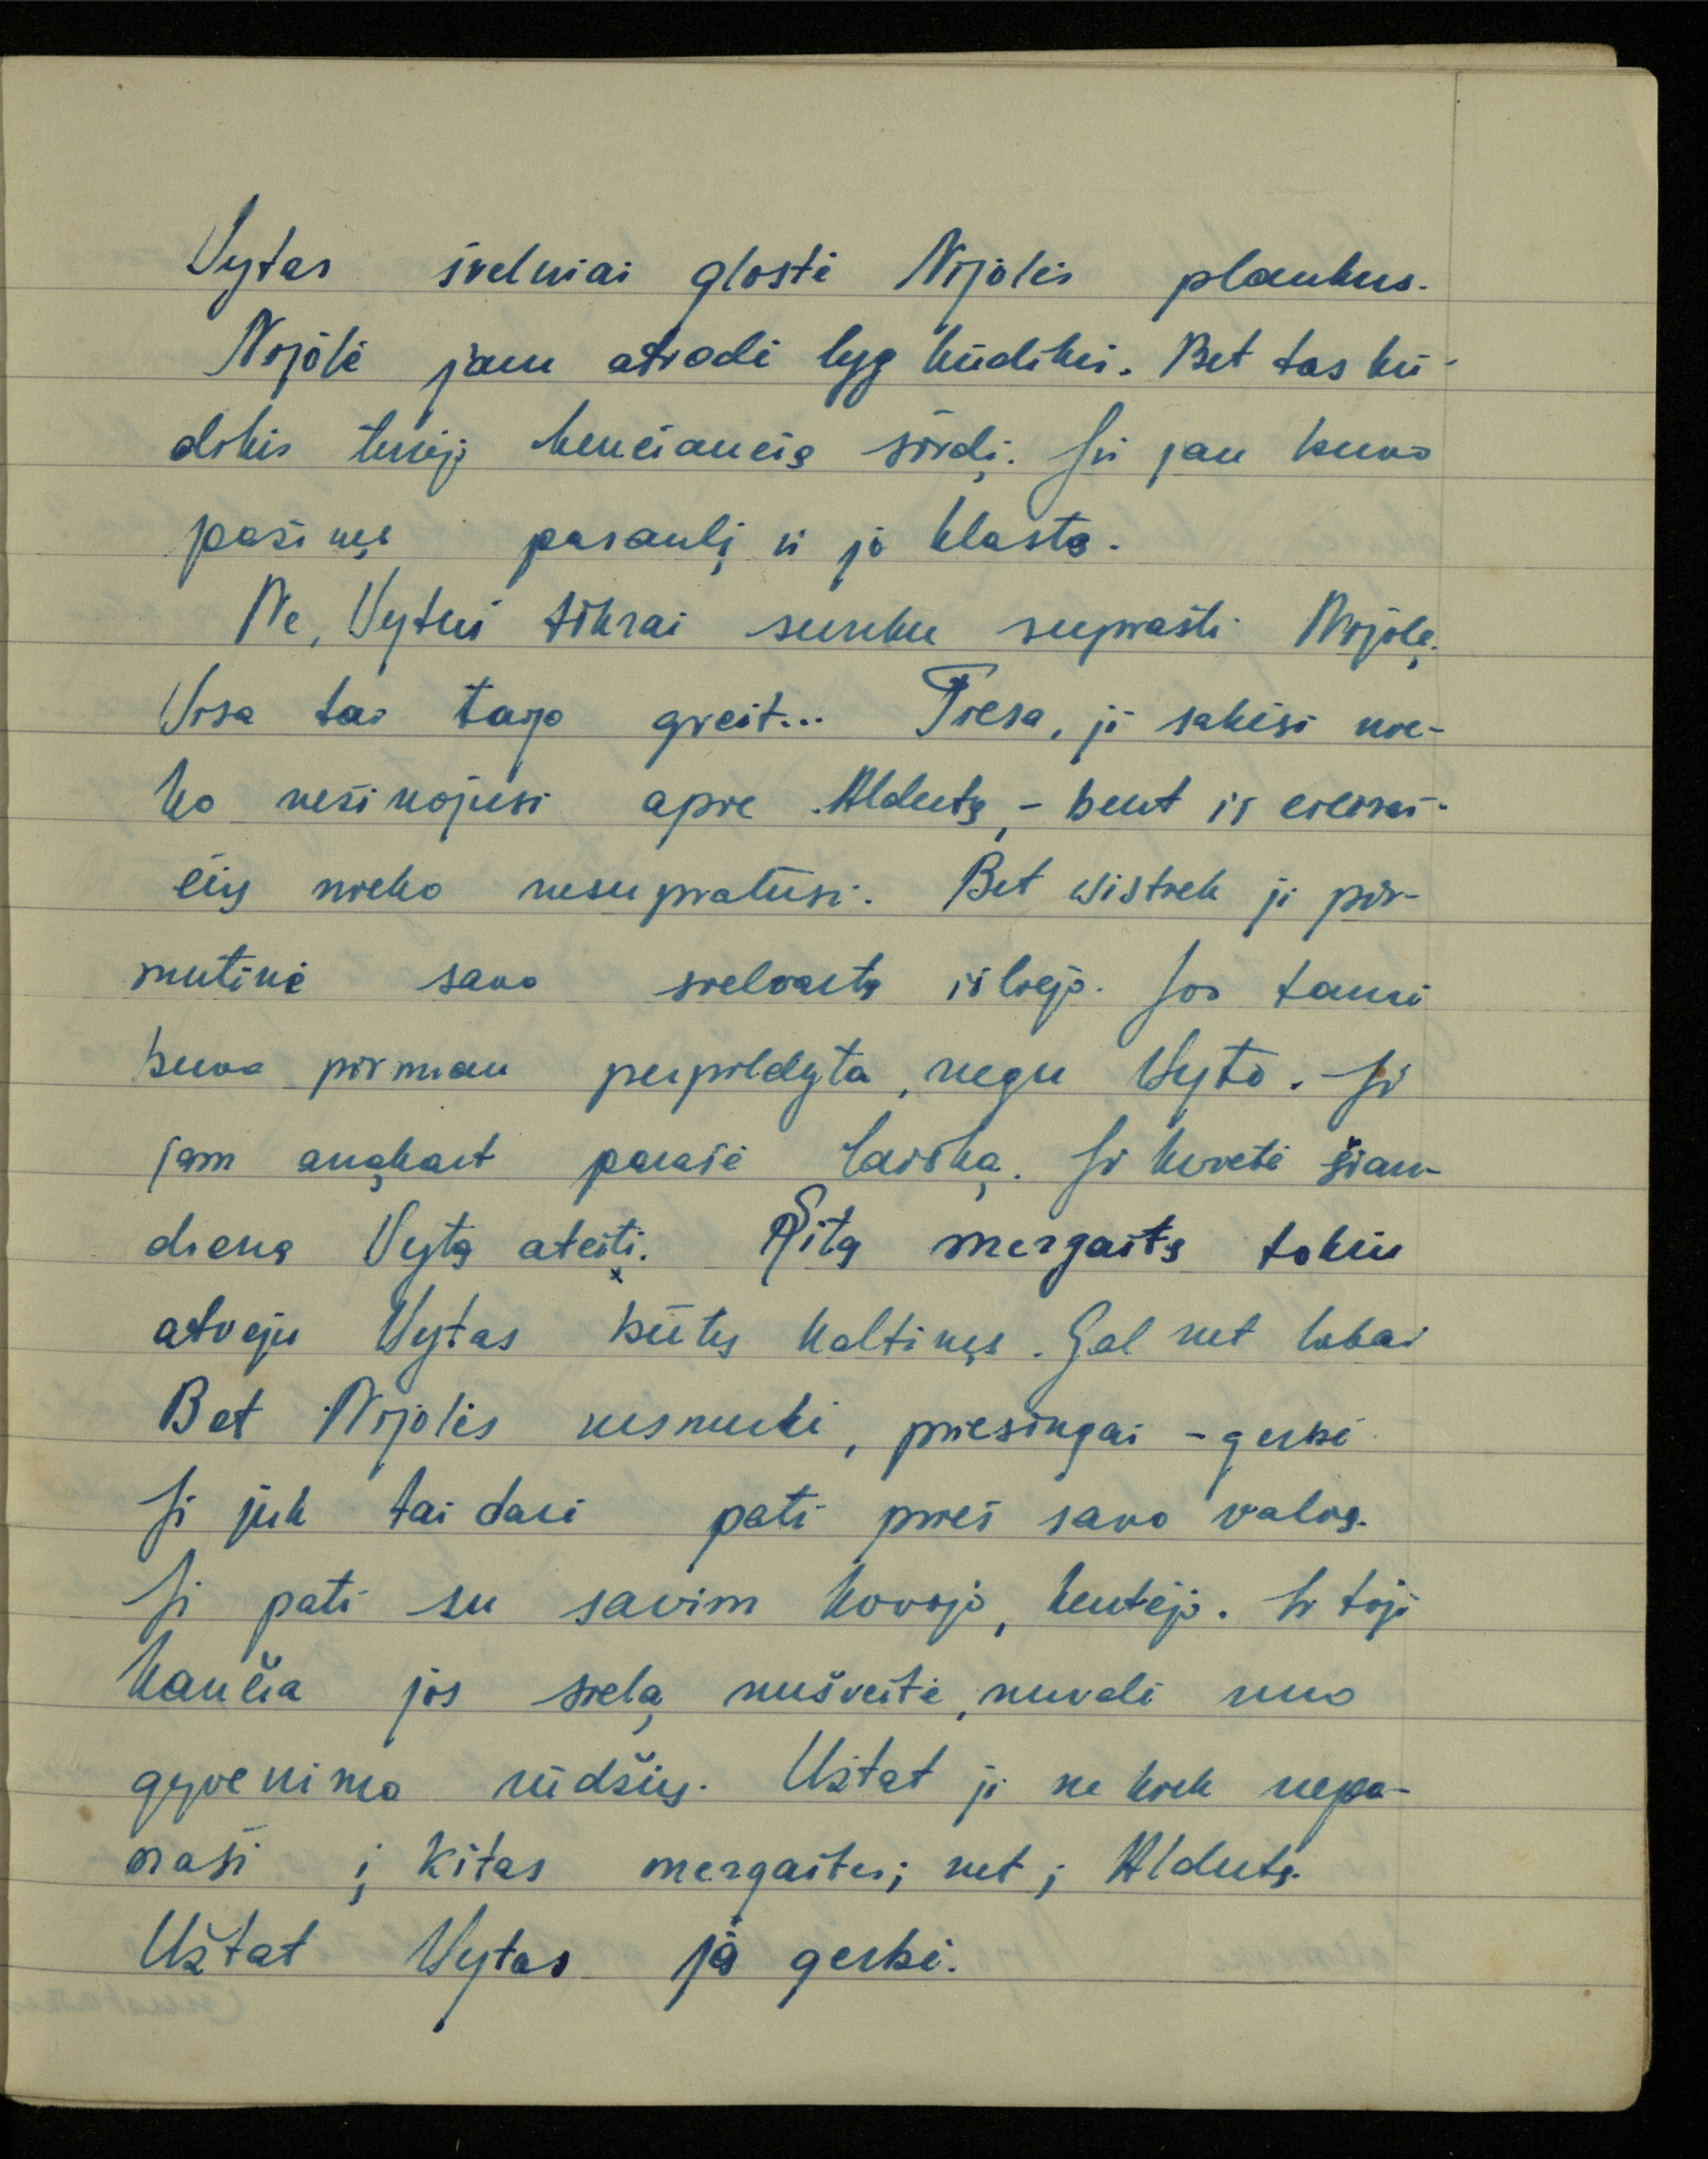 Vytas švelniai glostė Nijolės plaukus.
Nijolė jam atrodė lyg kūdikis. Bet tas kū-
dikis turėjo kenčiančią širdį. Jis jau buvo
pažinęs pasaulį ir jo klastą.
Ne, Vytui tikrai sunku suprasti Nijolę.
Visa tai taip greit... Tiesa, ji sakėsi nie-
ko nežinojusi apie Aldutę, - bent iš eilėraš-
čių nieko nesupratusi. Bet vistiek ji pir-
mutinė savo sielvartą išliejo. Jos taurė
buvo pirmiau perpildyta, negu Vyto. Ji
jam anąkart parašė laišką. Ji kvietė šian-
dieną Vytą ateiti. Šitą mergaitę tokiu
atveju Vytas būtų kaltinęs. Gal net labai
Bet Nijolės nesmerkė, priešingai - gerbė
Ji juk tai darė pati prieš savo valią.
Ji pati su savim kovojo, kentėjo. Ir toji
kančia jos sielą nušveitė, nuvalė nuo
gyvenimo rūdžių. Užtat ji ne kiek nepa-
naši į kitas mergaites; net į Aldutę.
Užtat Vytas ją gerbė.